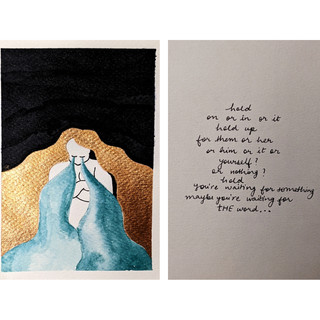 hold
on or in or it
hold up
for them or her
or him or it or
yourself?
or nothing?
hold
you're waiting for something
maybe you're waiting for
THE word...